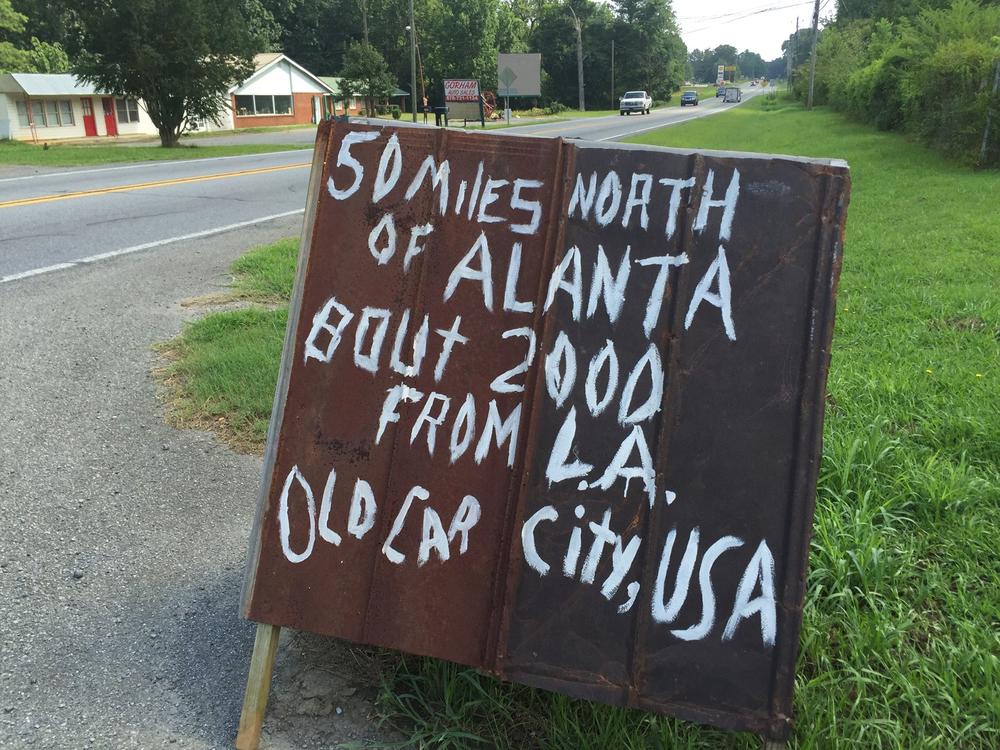 50 MilES NORTH
OF ALANTA
BOUt 2000
FROM L.A.
OLD CAR City, USA
GORHAM
AUTO SALES